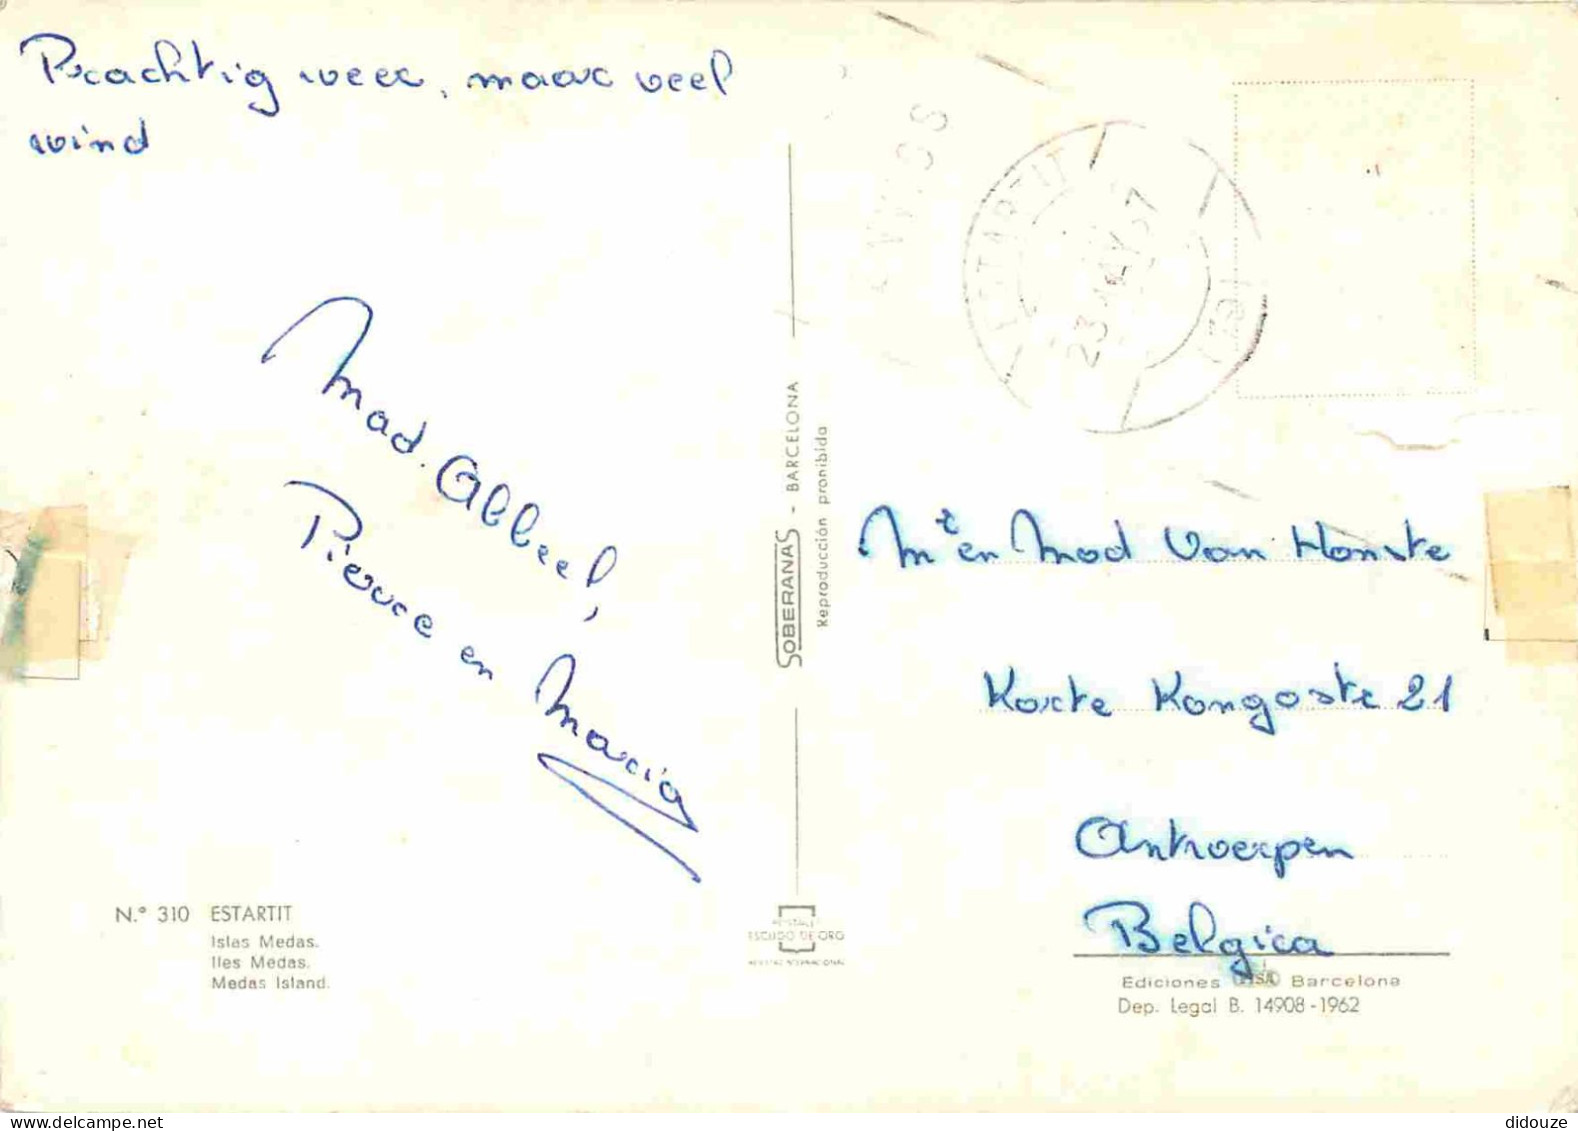 Prachtig weer, maar veel
wind
Mad. Abbeel,
Pierre en Maria
N.° 310 ESTARTIT
Islas Medas.
Iles Medas.
Medas Island.
SOBERANAS - BARCELONA
Reproducción prohibida
ESCUDO DE ORO
ESTARTIT
23 MAY 67
Mr en Mad Van Honste
Korte Kongostr 21
Antwerpen
Belgica
Ediciones Barcelona
Dep. Legal B. 14908-1962
didouze